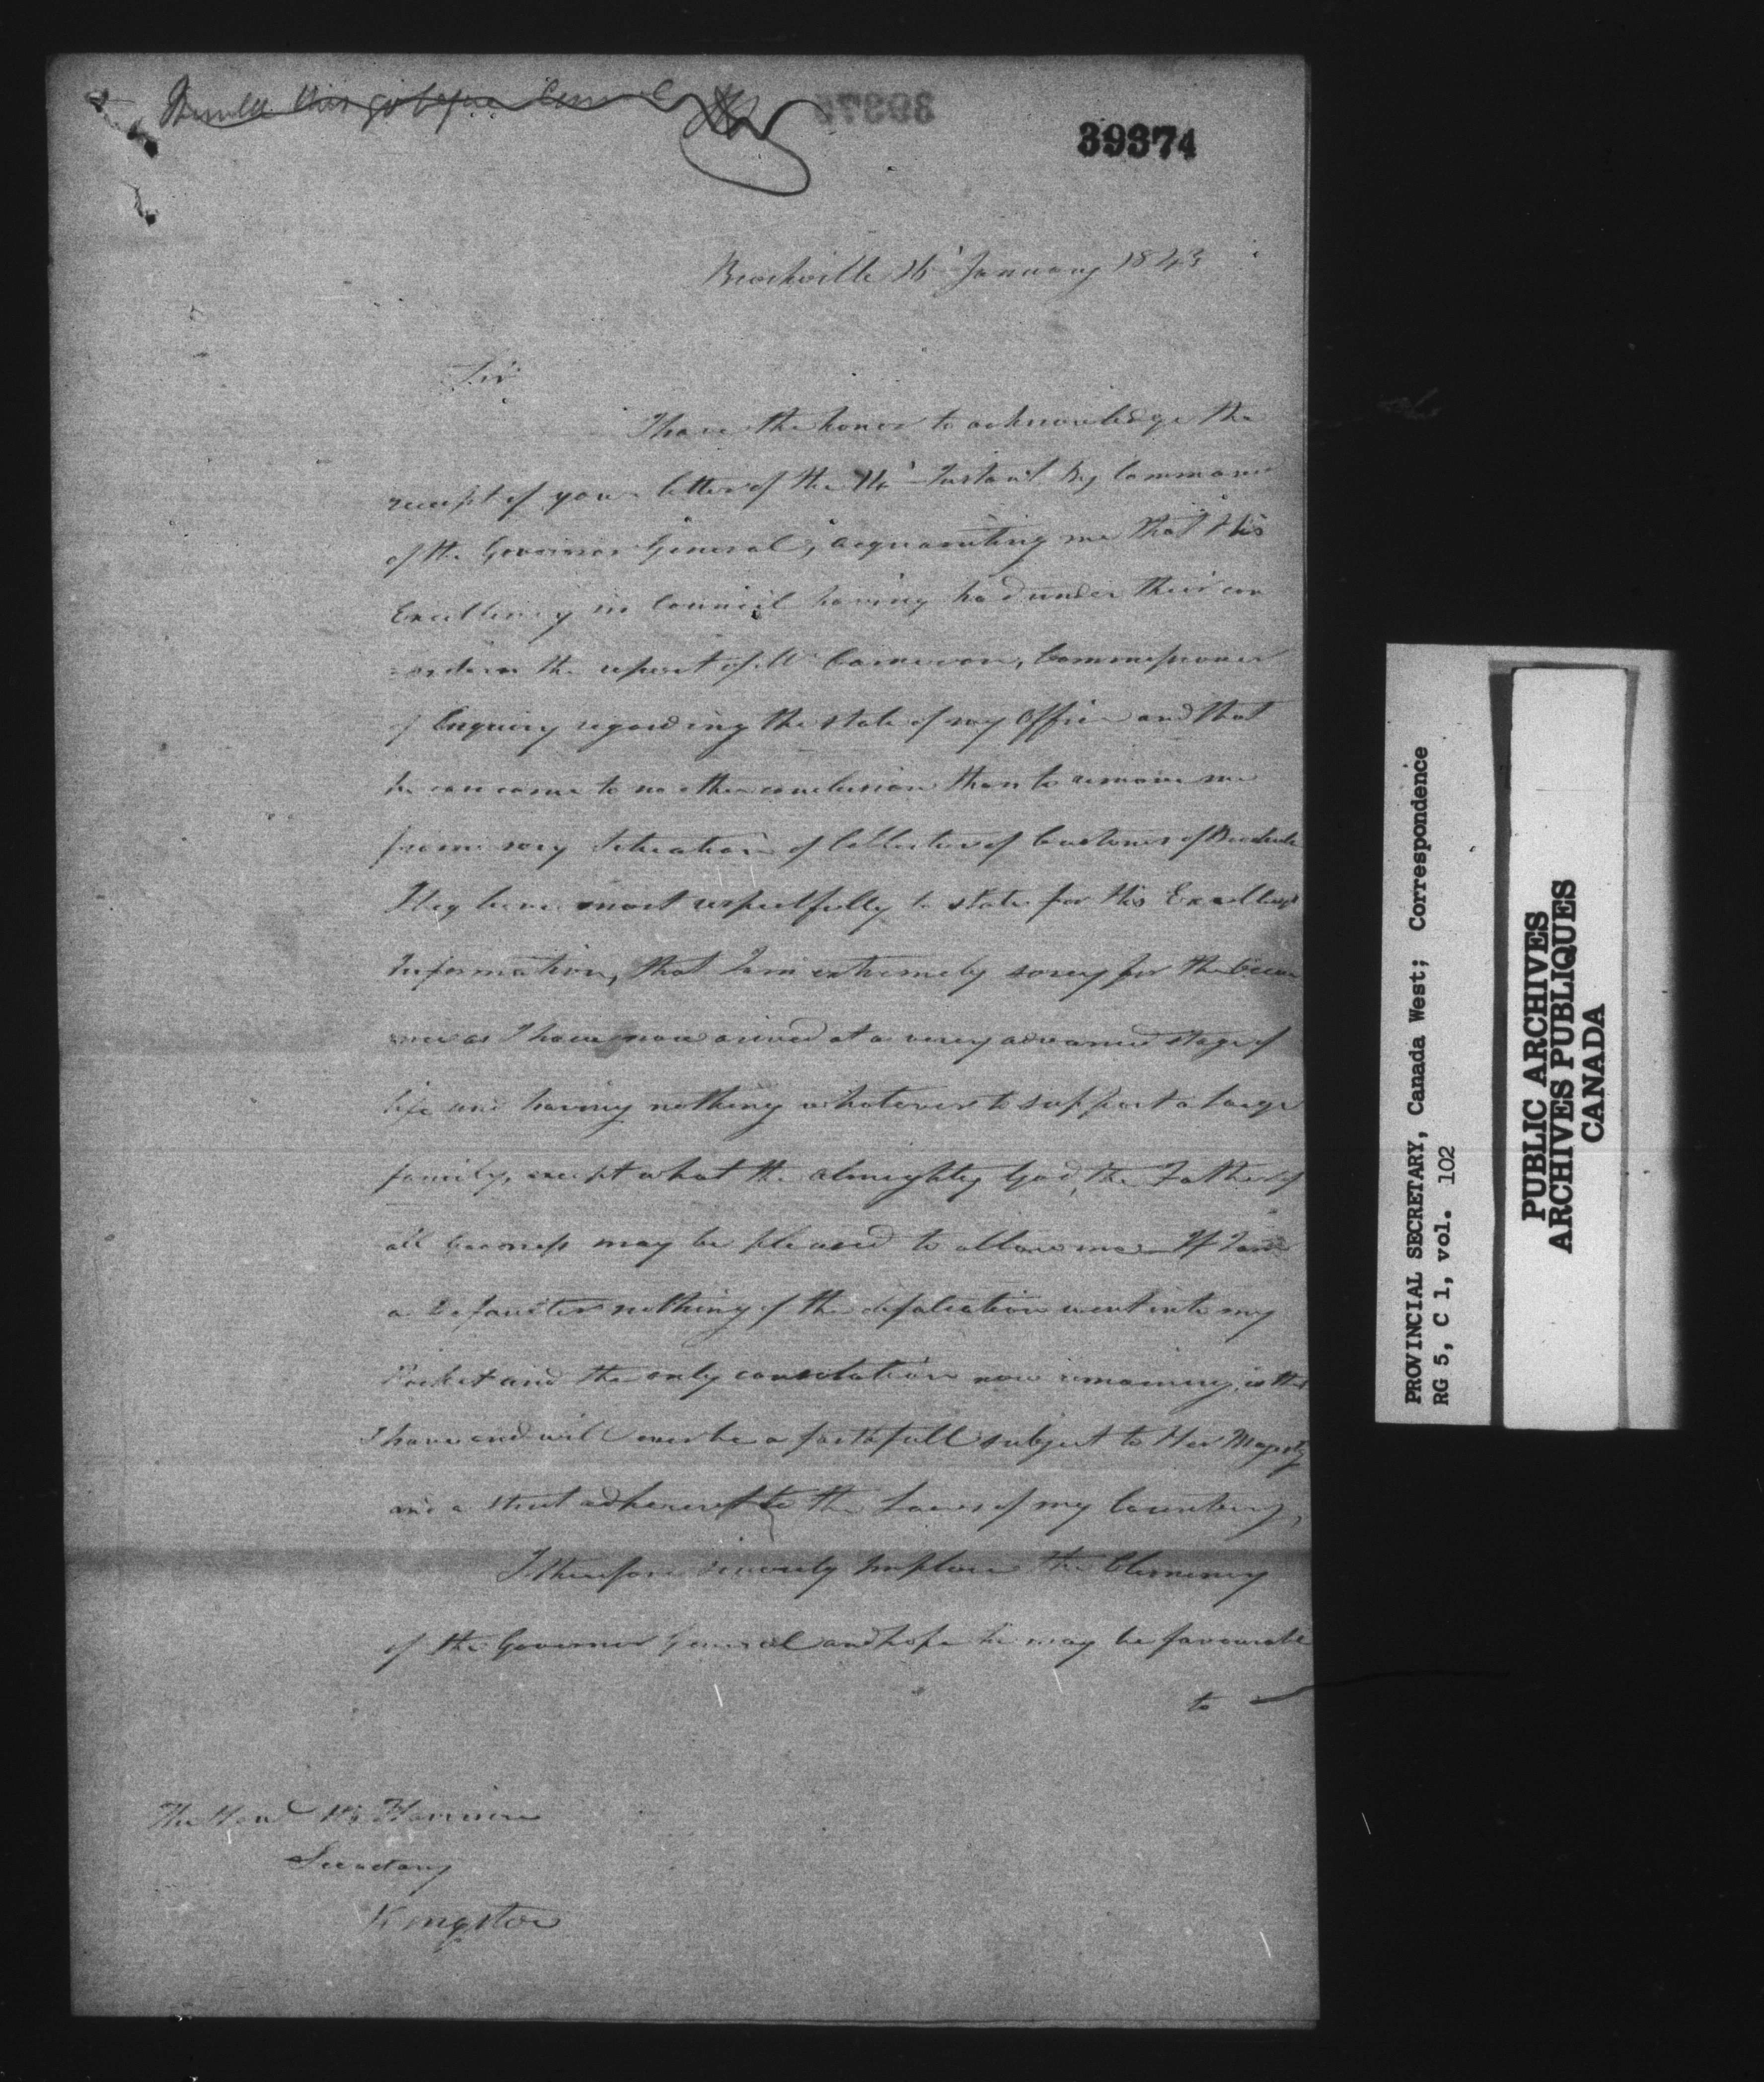 Should this go before Council
39374
Brockville 16 January 1843
Sir
I have the honor to acknowledge the
receipt of your letter of the 14 Instant by Command
of the Governor General, acquainting me that His
Excellency in Council having had under their con
the report of Mr Cameron, Commissioner
of Enquiry regarding the state of my Office and that
he can come to no other conclusion than to remove me
from my Situation of Collector of Customs of Brockville
I beg leave most respectfully to state for His Excellency's
Information, that I am extremely sorry for the
as I have now arived at a very advanced stage of
life and having nothing whatever to support a large
family, except what the Almighty God, the Father of
all Goodness may be pleased to allow me If I am
a Defaulter nothing of the defalcation went into my
Pocket and the only consolation now remaining, is that
I have and will ever be a faithfull subject to Her Majesty
and a strict adherent to the Laws of my Country,
I therefore sincerely Implore the Clemency
of the Governor General and hope he may be favourable
to
The Honl Harrison
Secretary
Kingston
PROVINCIAL SECRETARY, Canada West; Correspondence
RG 5, C 1, vol. 102
PUBLIC ARCHIVES
ARCHIVES PUBLIQUES
CANADA